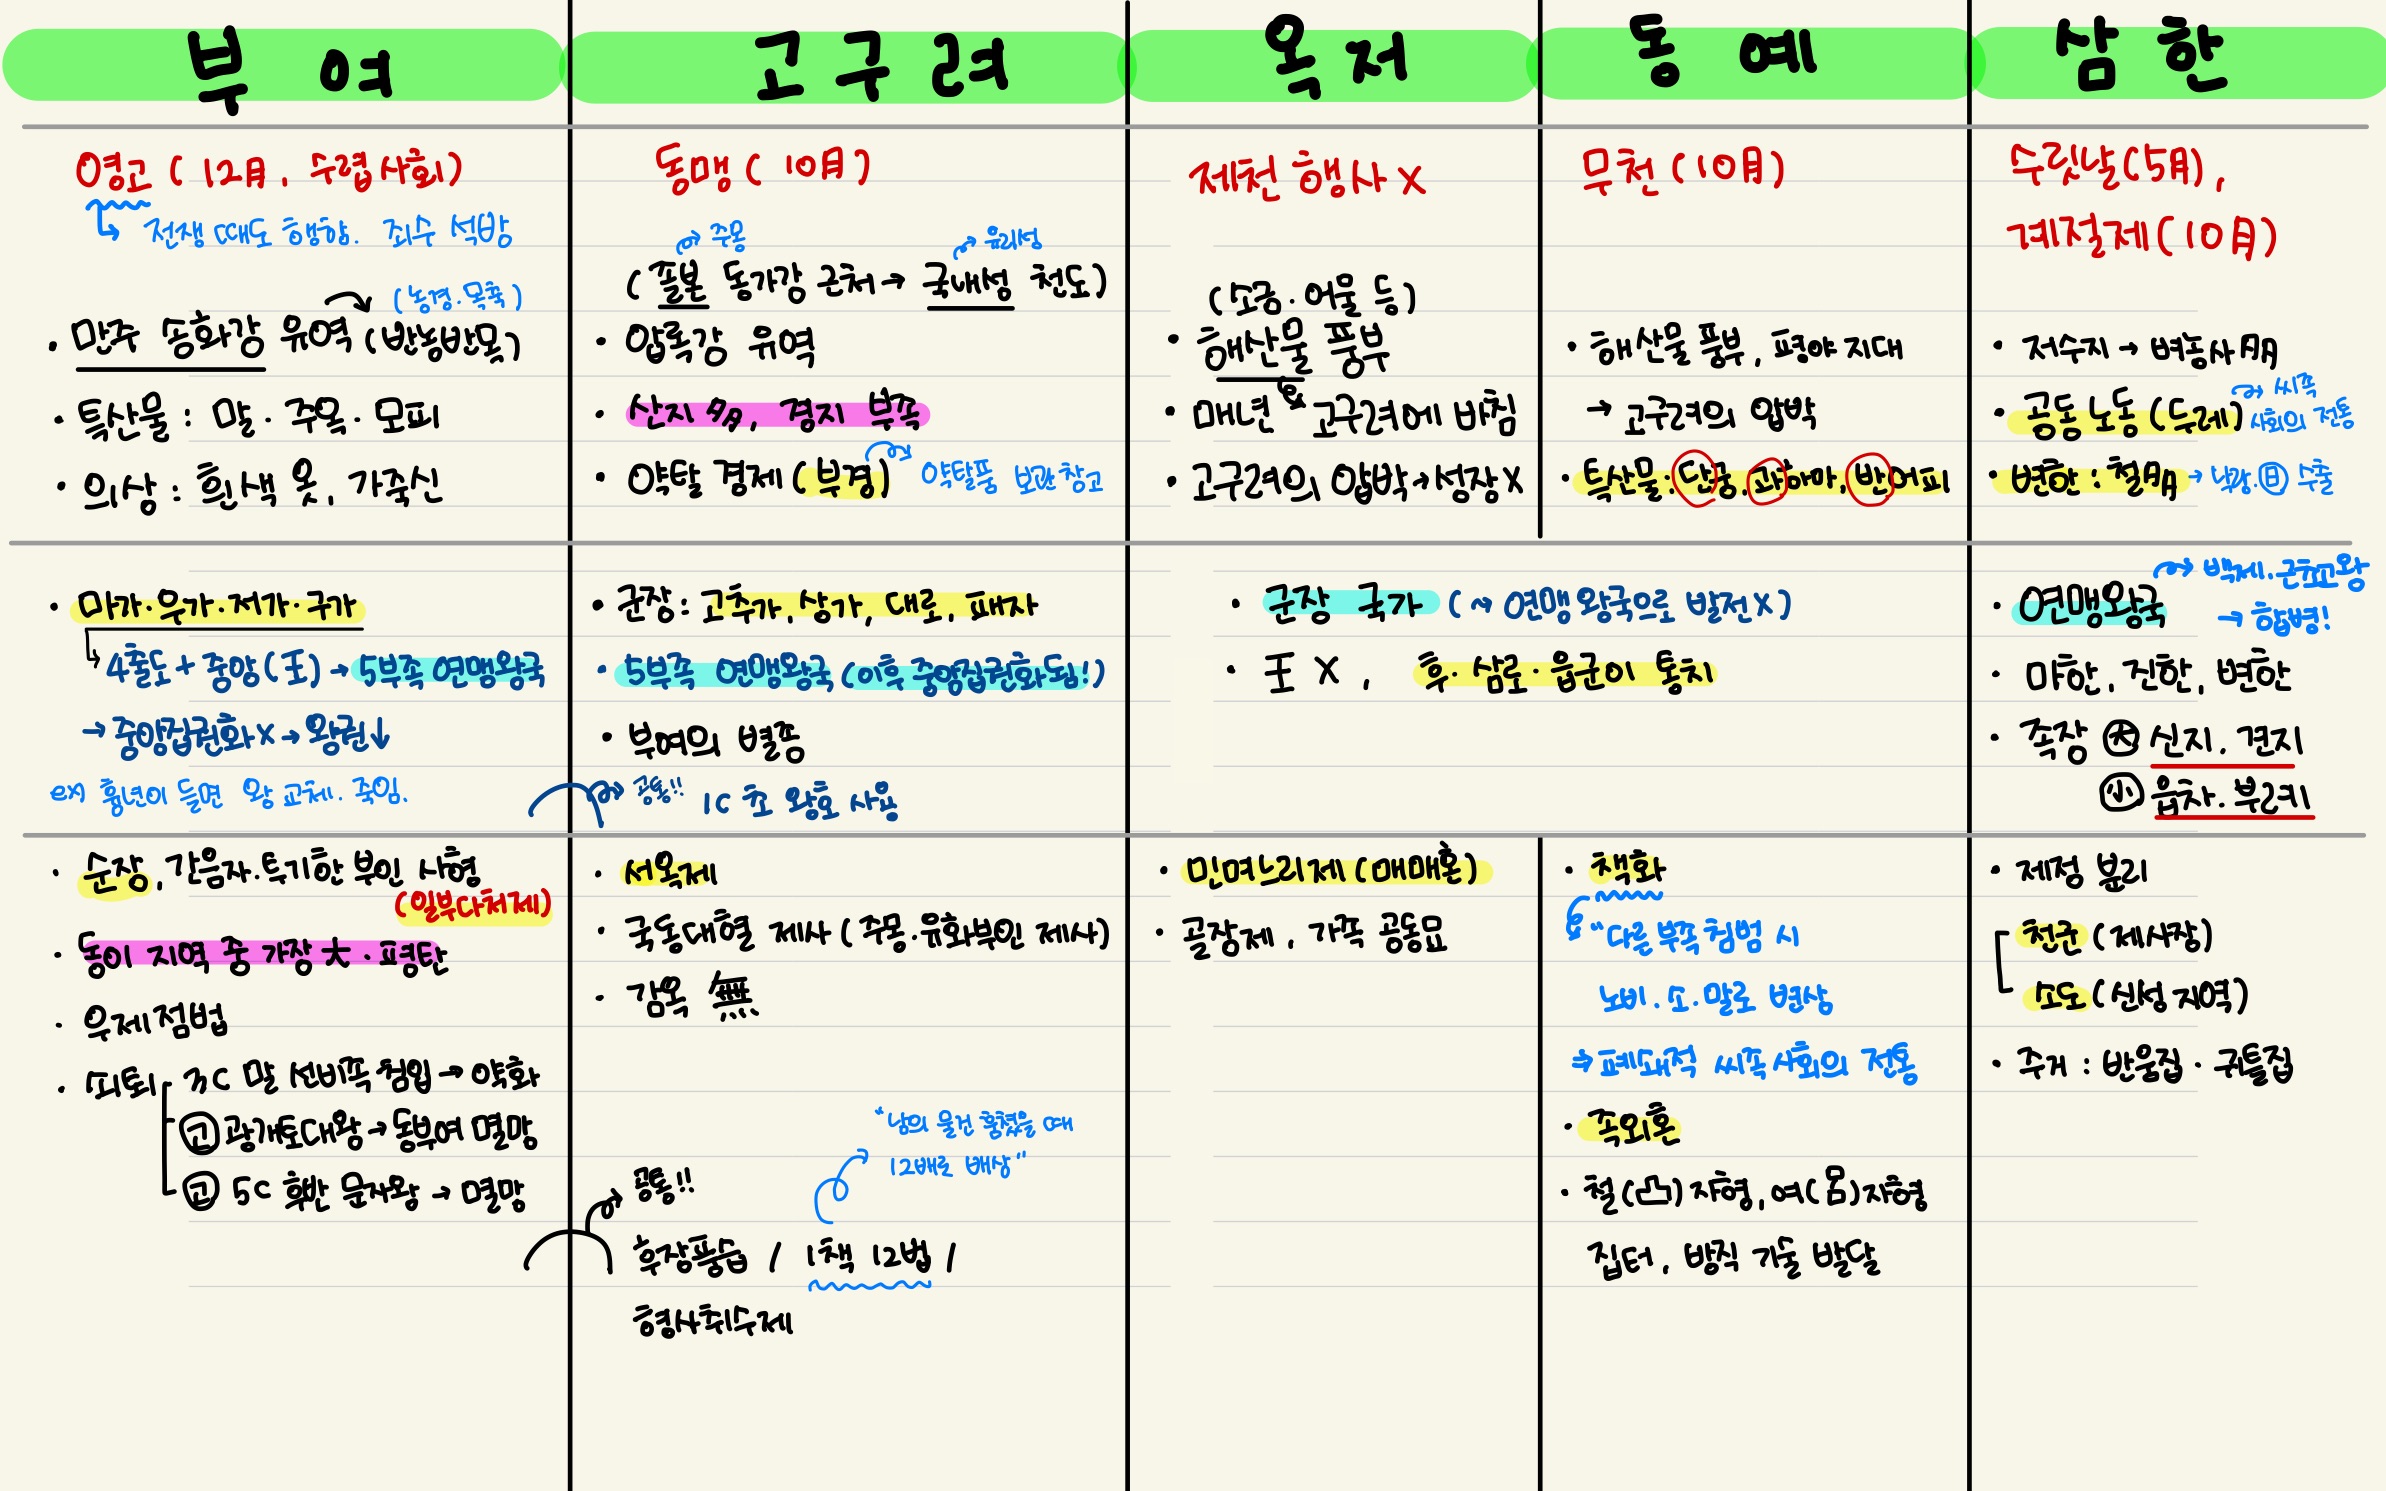 부여
영고 (12月, 수렵사회)
전쟁 때도 행함. 죄수 석방
(농경·목축)
· 만주 송화강 유역 (반농반목)
· 특산물 : 말 · 주옥 · 모피
· 의상 : 흰색 옷, 가죽신
· 마가·우가·저가·구가
4출도 + 중앙(王) → 5부족 연맹왕국
→ 중앙집권화 X → 왕권↓
ex) 흉년이 들면 왕 교체. 죽임.
· 순장, 간음자·투기한 부인 사형
(일부다처제)
· 동이 지역 중 가장 大 · 평탄
· 우제점법
· 쇠퇴 3C 말 선비족 침입 → 약화
고 광개토대왕 → 동부여 멸망
고 5C 후반 문자왕 → 멸망
고구려
동맹 (10月)
주몽
유리성
(졸본 동가강 근처 → 국내성 천도)
· 압록강 유역
· 산지 多, 경지 부족
· 약탈 경제 (부경) 약탈품 보관창고
· 군장 : 고추가, 상가, 대로, 패자
· 5부족 연맹왕국 (이후 중앙집권화됨!)
· 부여의 별종
공통!! 1C 초 왕호 사용
· 서옥제
· 국동대혈 제사 (주몽·유화부인 제사)
· 감옥 無
"남의 물건 훔쳤을 때
12배로 배상"
공통!!
후장풍습 / 1책 12법 /
형사취수제
옥저
제천 행사 X
(소금·어물 등)
· 해산물 풍부
· 매년 고구려에 바침
· 고구려의 압박 → 성장 X
동예
무천 (10月)
· 해산물 풍부, 평야 지대
→ 고구려의 압박
· 특산물 : 단궁, 과하마, 반어피
· 군장 국가 (↝ 연맹왕국으로 발전 X)
· 王 X, 후·삼로·읍군이 통치
· 민며느리제 (매매혼)
· 골장제, 가족 공동묘
· 책화
"다른 부족 침범 시
노비·소·말로 변상
⇒ 폐쇄적 씨족사회의 전통
· 족외혼
· 철(凸)자형, 여(呂)자형
집터, 방직 기술 발달
삼한
수릿날(5月),
계절제(10月)
· 저수지 → 벼농사 朋
씨족
· 공동 노동 (두레) 사회의 전통
· 변한 : 철 朋 → 낙랑·日 수출
백제·근초고왕
· 연맹왕국 → 합병!
· 마한, 진한, 변한
· 족장 大 신지, 견지
小 읍차·부례
· 제정 분리
천군 (제사장)
소도 (신성 지역)
· 주거 : 반움집 · 귀틀집